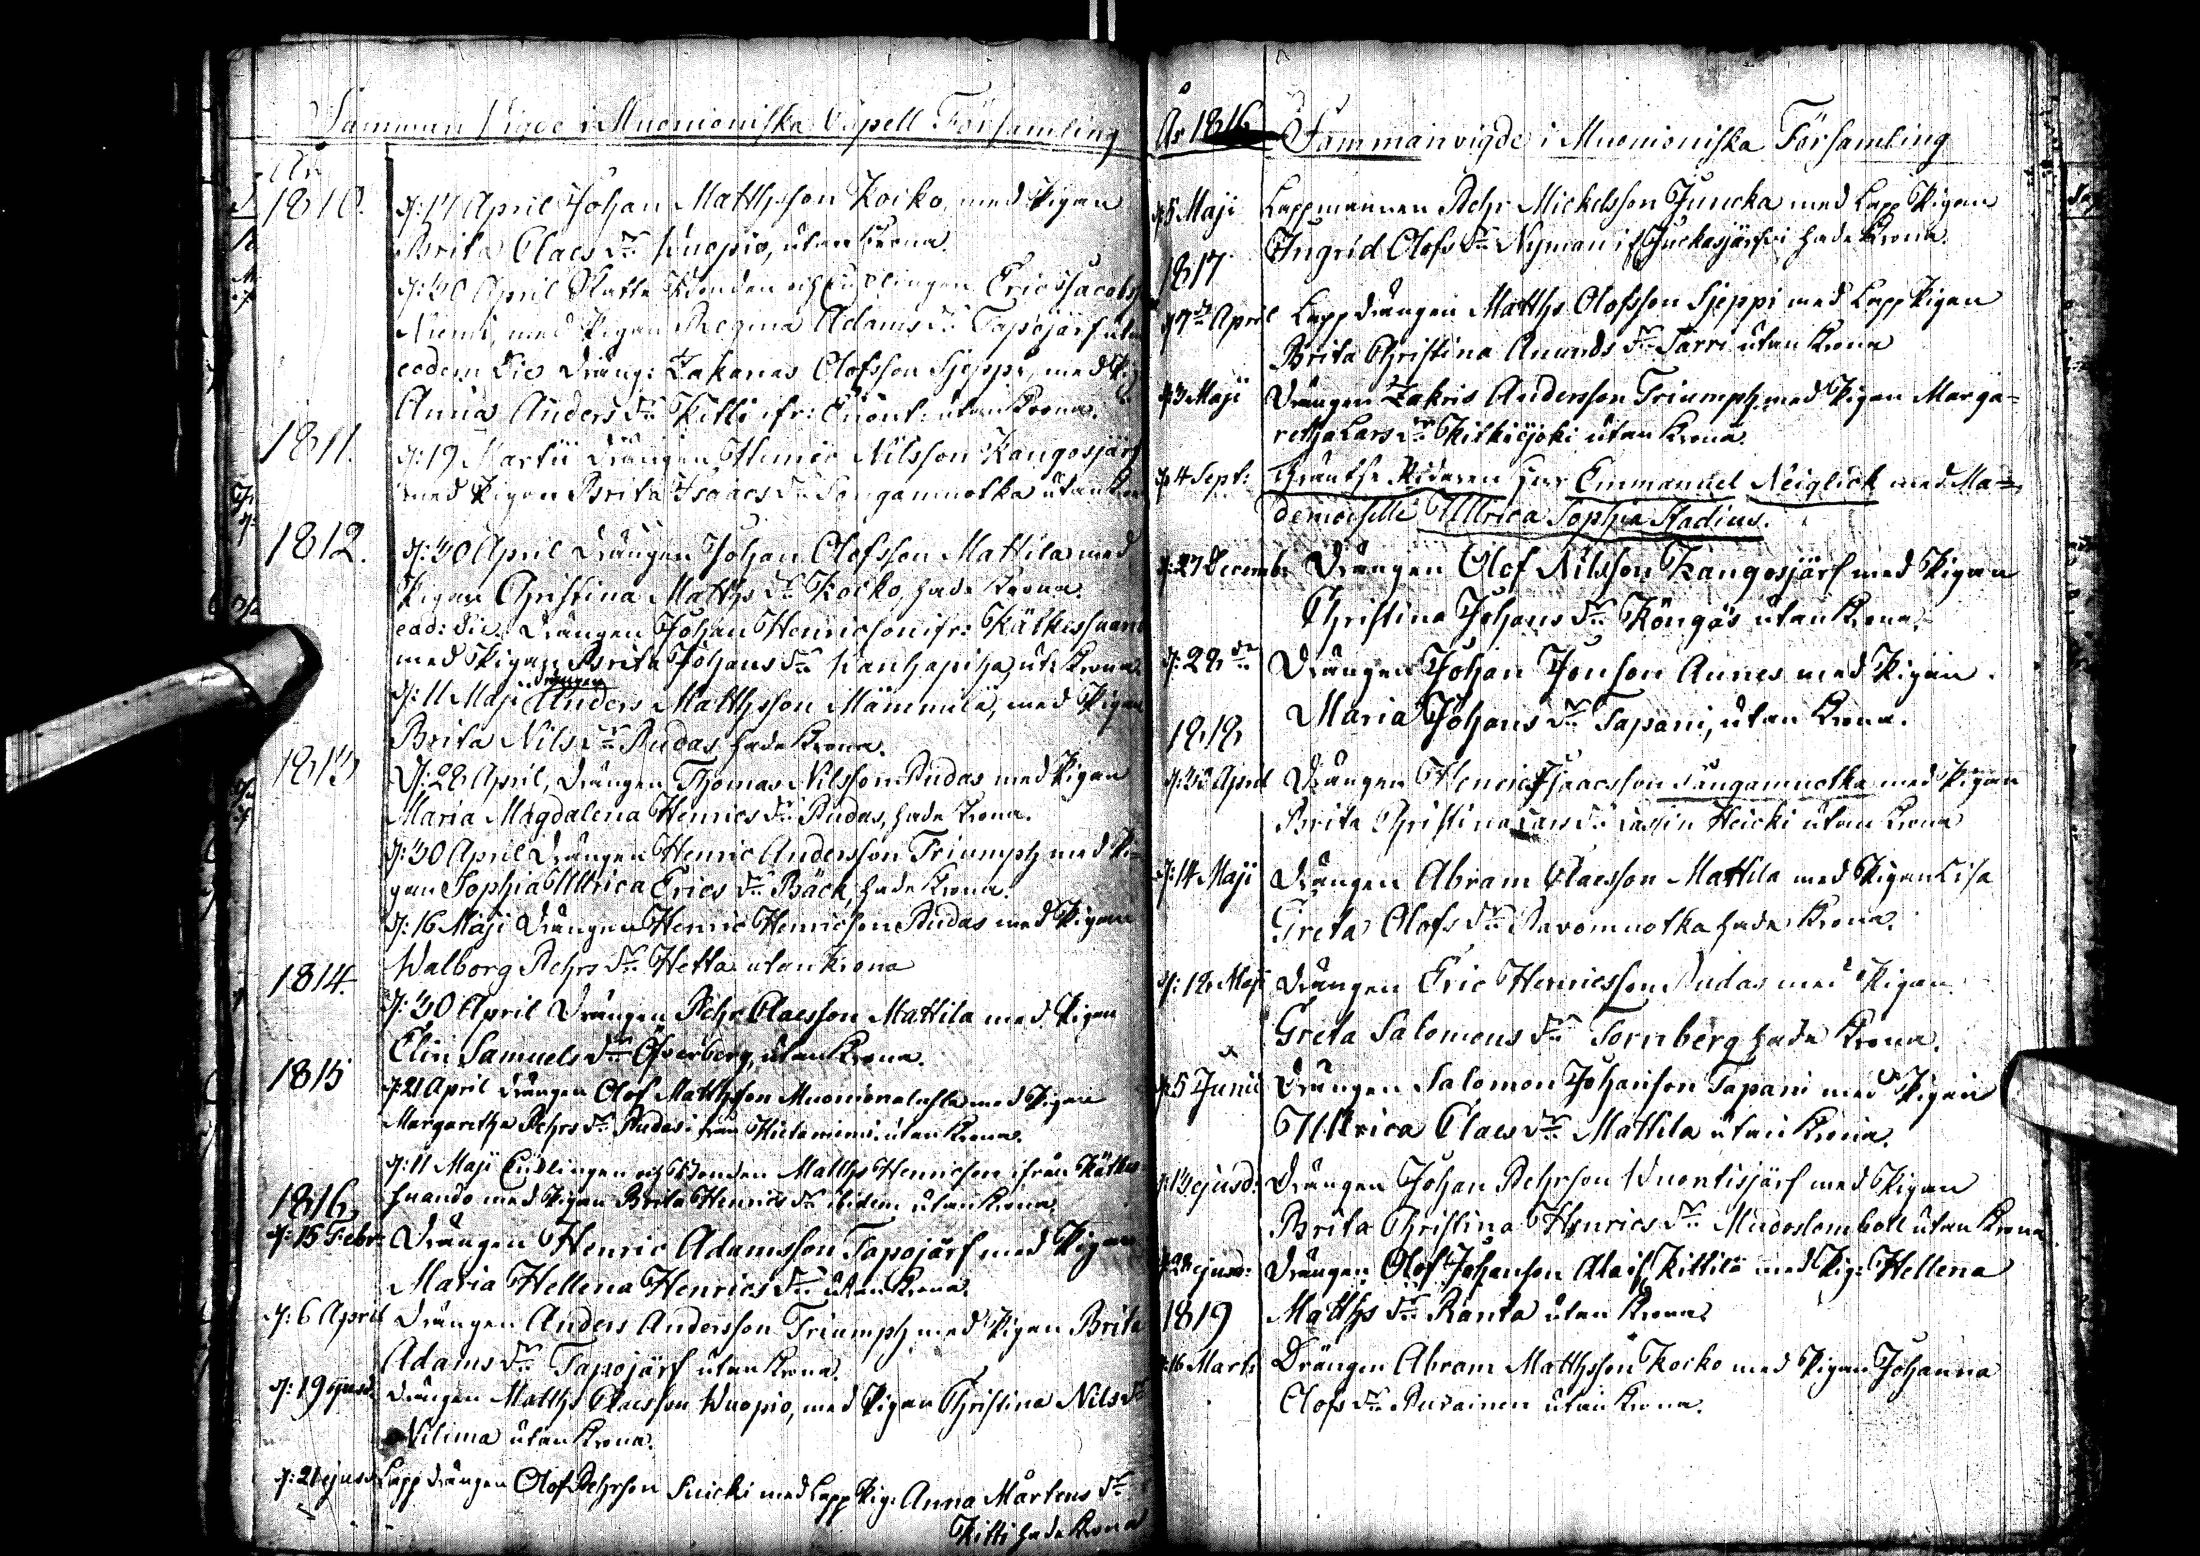 Samman Vigde i Muonioniska Capell Församling
År
1810. d: 17 April Johan Matthsson Koiko, med Pigan
Brita Claes dr Kuopio, utan Krona.
d: 30 April Enklingen Eric Jacobs
Niemi, med Pigan Regina Adams dr Tapojärf utan
eodem die Dräng: Zakarias Olofsson Sjeppi, med Pig
Anna Anders dr Kitti ifr: Enont: utan Krona.
1811. d: 19 Martii Drängen Henric Nilsson Kangosjärf
med Pigan Brita Isaacs dr Songamuotka utan Kro
1812. d: 30 April Drängen Johan Olofsson Mattila med
Pigan Christina Matths dr Koiko, hade Krona.
eod: die. Drängen Johan Henricson ifr: Kätkesuan
med Pigan Brita Johans dr ut: Krona.
drängen
d: 11 Maji Anders Matthsson Mämmilä, med Pigan
Brita Nils dr Rudas hade Krona.
1813 d: 28 April, Drängen Thomas Nilsson Rudas med Pigan
Maria Magdalena Henrics dr Rudas, hade Krona.
d: 30 April Drängen Henric Andersson Triumph med Pi-
gan Sophia Ullrica Erics dr Bäck, hade Krona.
d: 16 Maji Drängen Henric Henricson Rudas med Pigan
Walborg Pehrs dr Hetta utan Krona
1814. d: 30 April Drängen Pehr Claesson Mattila med Pigan
Elin Samuels dr Öfverberg, utan Krona.
1815 d: 21 April Drängen Olof Matthsson med Pigan
Margaretha Pehrs dr Rudas i från Hietaniemi. utan Krona.
d: 11 Maji Enklingen och Bonden Matths Henricson ifrån Kätke
suando med Pigan Brita Henrics dr ibidem utan Krona.
1816.
d: 15 Febr: Drängen Henric Adamsson Tapojärf med Pigan
Maria Hellena Henrics dr utan Krona.
d: 6 April Drängen Anders Andersson Triumph med Pigan Brita
Adams dr Tapojärf utan Krona.
d: 19 ejusd. Drängen Matths Claesson Kuopio, med Pigan Christina Nils dr
Nilima utan Krona.
d: 21 ejusd. Lapp drängen Olof Pehrson Suicki med Lapp Pig: Anna Mårtens dr
Kitti hade Krona
År 1816 Sammanvigde i Muonioniska Församling
d: 5 Maji Lappmannen Pehr Mickelsson Juncka med Lapp Pigan
Ingrid Olofs dr Nyman if Juckasjärfvi hade Krona.
1817
d: 7 April Lapp drängen Matths Olofsson Sjeppi med Lapp Pigan
Brita Christina Amunds dr Sarri utan Krona
d: 3 Maji Drängen Zakris Andersson Triumph, med Pigan Marga=
retha Lars dr Kitkiöjoki utan Krona.
d: 4 Sept: Herr Emmanuel Neiglick med Ma=
demoiselle Ullrica Sophia Stadius.
d: 27 Decembr Drängen Olof Nilsson Kangosjärf med Pigan
Christina Johans dr Köngäs utan Krona.
d: 28 dr Drängen Johan Jonson Aunes med Pigan
Maria Johans dr Tapani, utan Krona.
1818
d: 30 April Drängen Henric Isaacsson Songamuotka med Pigan
Brita Christina Lars dr Lassin Heicki utan Krona
d: 14 Maji Drängen Abram Claesson Mattila med Pigan Lisa
Greta Olofs dr Pavomuotka hade Krona.
d: 18 Maji Drängen Eric Henricsson Rudas med Pigan
Greta Salomons dr Tornberg hade Krona.
d: 5 Junii Drängen Salomon Johanson Tapani med Pigan
Ullrica Claes dr Mattila utan Krona.
d: 13 ejusd: Drängen Johan Pehrson Wuontisjärf med Pigan
Brita Christina Henrics dr Mudoslombolo utan Krona
d: 28 ejusd: Drängen Olof Johanson Ala if Kittilä med Pig: Hellena
1819 Matths dr Ranta utan Krona
d: 16 Marti Drängen Abram Matthsson Koiko med Pigan Johanna
Olofs dr Puranen utan Krona.